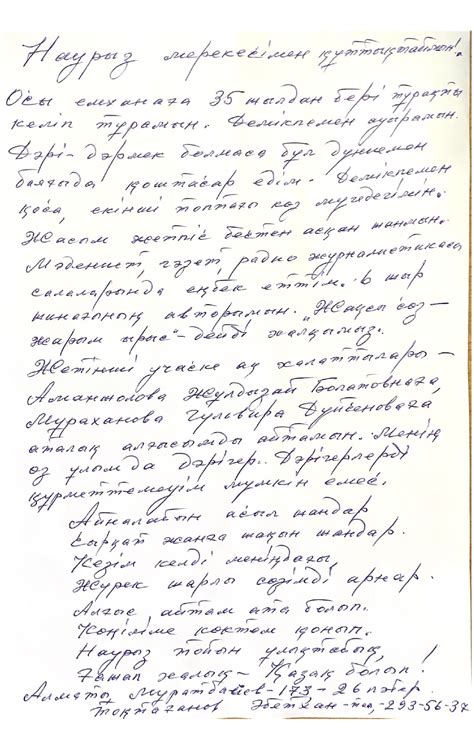 Наурыз мерекесімен құттықтаймын!
Осы емханаға 35 жылдан бері тұрақты
келіп тұрамын. Демікпемен ауырамын.
Дәрі-дәрмек болмаса бұл дүниемен
баяғыда қоштасар едім. Демікпемен
қоса, екінші топтағы көз мүгедегімін.
Жасым жетпіс бестен асқан шанмын.
Мәдениет, газет, радио журналистикасы
салаларында еңбек еттім. 6 жыр
жинағының авторымын. „Жақсы сөз –
жарым ырыс“ – дейді халқымыз.
Жетінші учаске ақ халаттылары –
Аманжолова Жұлдызай Болатовнаға,
Мураханова Гүлвира Дүйбеноваға
аталық алғысымды айтамын. Менің
өз ұлым да дәрігер.. Дәрігерлерді
құрметтемеуім мүмкін емес.
Айналайын асыл жандар
Сырқат жанға жақын жандар.
Кезім келді меніңдағы,
Жүрек жарлы сөзімді арнар.
Алғыс айтам ата болып.
Көңіліме көктем қонып.
Наурыз тойын ұлықтайық,
Ғажап халық – Қазақ болып!
Алматы, Мұратбаев – 173 – 26 пәтер.
Тоқтағанов Әбетхан – тел, – 293-56-37